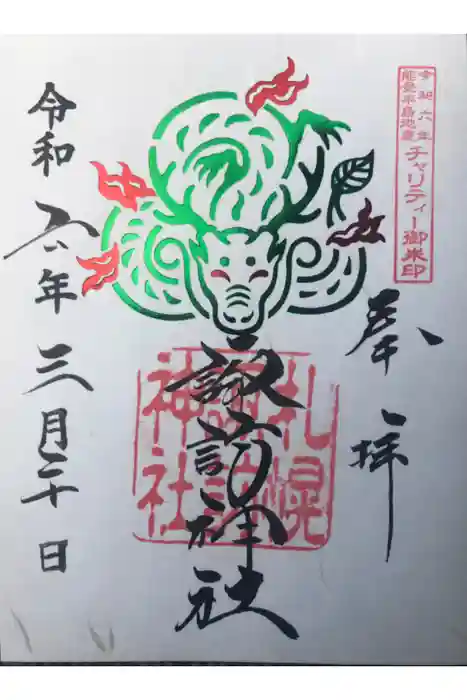 令和六年
能登半島地震
チャリティー御朱印
奉拝
札幌
諏訪
神社
諏訪神社
令和六年三月二十日